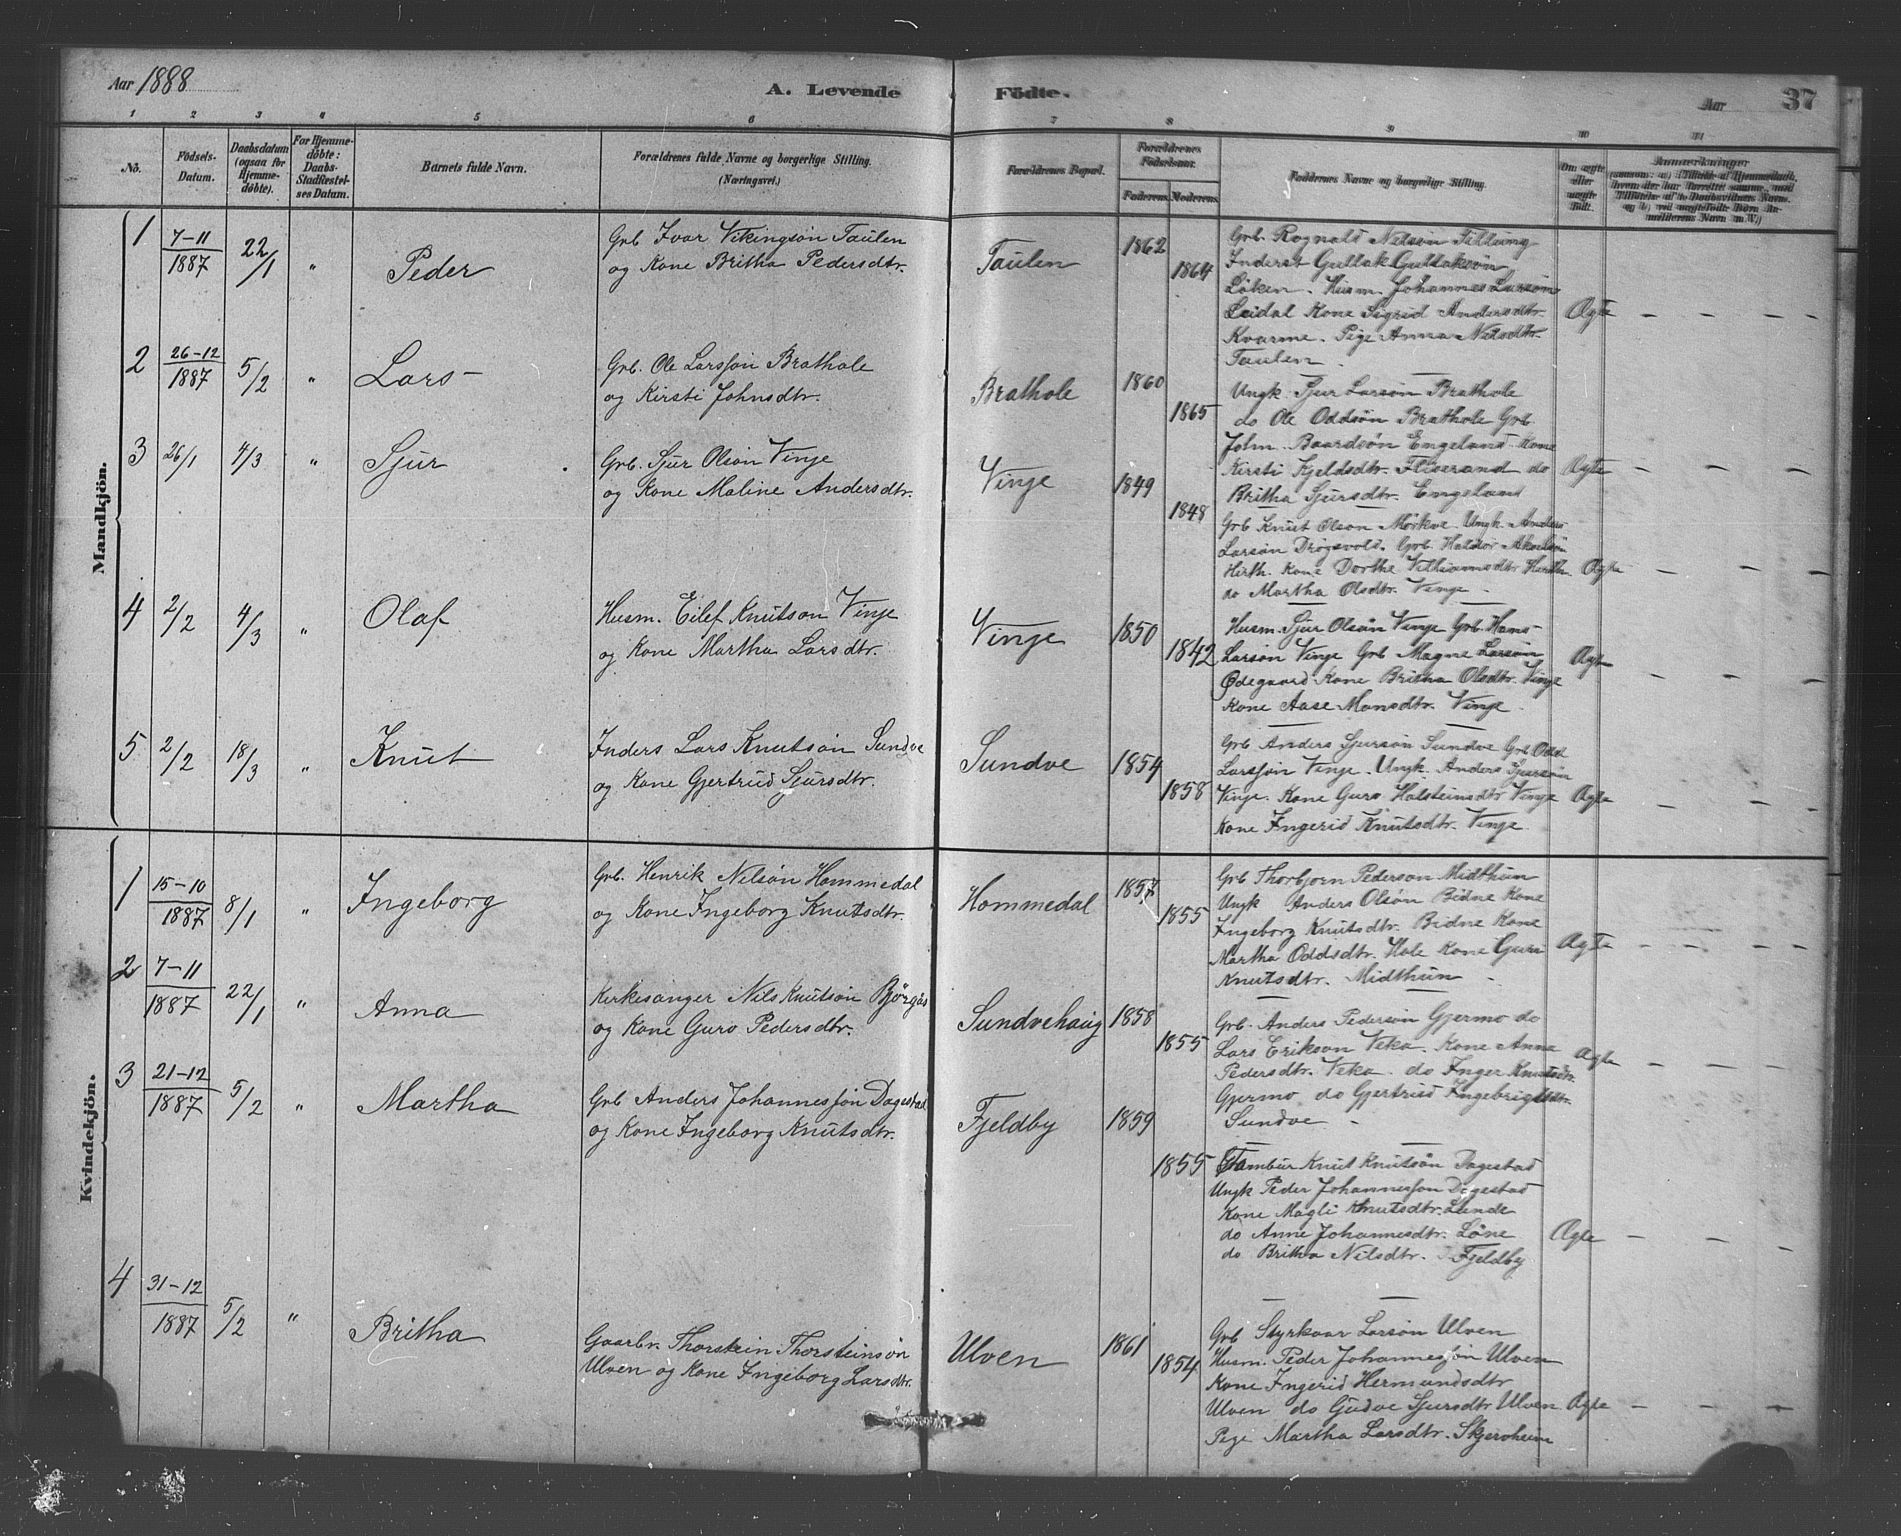 Aar 1888
A. Levende Födte.
Aar 37
1 2 3 4 5 6 7 8 9 10 11
No.
Födsels-
Datum.
Daabsdatum
(ogsaa for
Hjemme-
döbte).
For Hjemme-
döbte:
Daabs-
Stadfæstel-
ses Datum.
Barnets fulde Navn.
Forældrenes fulde Navne og borgerlige Stilling.
(Næringsvei.)
Forældrenes Bopæl.
Forældrenes
Födselsaar.
Faderens. Moderens.
Faddernes Navne og borgerlige Stilling.
Om ægte
eller
uægte
födt.
Anmærkninger
Mandkjön.
1 7-11 1887 22/1 " Peder
Grb Ivar Vikingsön Taulen
og Kone Britha Pedersdtr.
Taulen 1862 1864
Grb. Rognald Nilsön Tillung
Inderst Gullak Gullaksön
Löken. Husm. Johannes Larsön
Leidal Kone Sigrid Andersdtr.
Kvarme. Pige Anna Nilsdtr.
Taulen.
Ægte
2 26-12 1887 5/2 " Lars
Grb. Ole Larssön Brathole
og Kirsti Johnsdtr.
Brathole 1860 1865
Ungk. Sjur Larsön Brathole
do Ole Oddsön Brathole Grb
John. Baardsön Engeland. Kone
Kirsti Kjeldsdtr. do
Britha Sjursdtr. Engeland
Ægte
3 26/1 4/3 " Sjur
Grb. Sjur Olsön Vinje
og Kone Maline Andersdtr.
Vinje 1849 1848
Grb Knut Olson Mörkve Ungk. Anders
Larsön Drögsvold. Grb. Haldor
Hirth. Kone Dorthe Villiamsdtr Hirth.
do Martha Olsdtr. Vinje.
Ægte
4 2/2 4/3 " Olaf
Husm. Eilef Knutson Vinje
og Kone Martha Larsdtr.
Vinje 1850 1842
Husm. Sjur Olsön Vinje Grb. Hans
Larsön Vinje Grb Magne Larsön
Ødegaard. Kone Britha Olsdtr. Vinje
Kone Aase Monsdtr. Vinje.
Ægte
5 2/2 18/3 " Knut
Inders Lars Knutsön Sundve
og Kone Gjertrud Sjursdtr.
Sundve 1854 1858
Grb Anders Sjursön Sundve Grb. Odd
Larssön Vinje. Ungk. Anders Sjursön
Vinje. Kone Guro Holsteinsdtr Vinje
Kone Ingerid Knutsdtr. Vinje
Ægte
Kvindekjön.
1 15-10 1887 8/1 " Ingeborg
Grb. Henrik Nilsön Hommedal
og Kone Ingeborg Knutsdtr.
Hommedal 1857 1855
Grb Thorbjorn Pederson Midthun
Ungk Anders Olsön Bidne Kone
Ingeborg Knutsdtr. Bidne Kone
Martha Oddsdtr. Hole Kone Guri
Knutsdtr. Midthun.
Ægte
2 7-11 1887 22/1 " Anna
Kirkesanger Nils Knutsön Bjørgås
og Kone Guro Pedersdtr.
Sundvehaug 1858 1855
Grb. Anders Pedersön Gjermo do
Lars Erikson Veka. Kone Anna
Pedersdtr. Veka. do Inger Knutsdtr.
Gjermo do Gjertrud Ingebrigtsdtr.
Sundve.
Ægte
3 21-12 1887 5/2 " Martha
Grb Anders Johannessön Dagestad
og Kone Ingeborg Knutsdtr.
Fjeldby 1859 1855
Tambur Knut Knutsön Dagestad
Ungk Peder Johannesson Dagestad
Kone Magli Knutsdtr. Lunde
do Anne Johannesdtr. Löne
do Britha Nilsdtr. Fjeldby
Ægte
4 31-12 1887 5/2 " Britha
Gaarbr. Thorstein Thorsteinsön
Ulven og Kone Ingeborg Larsdtr.
Ulven 1861 1854
Grb Styrkaar Larsön Ulven
Husm. Peder Johannessön Ulven
Kone Ingerid Hermundsdtr
Ulven do Gudve Sjursdtr Ulven
Pige Martha Larsdtr. Skjerveheim
Ægte